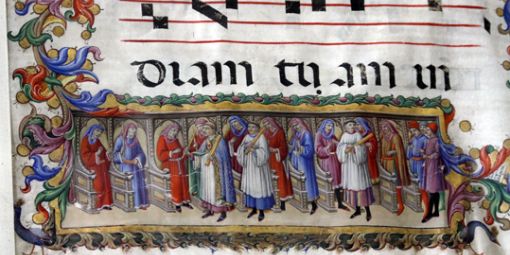 diam tu am in